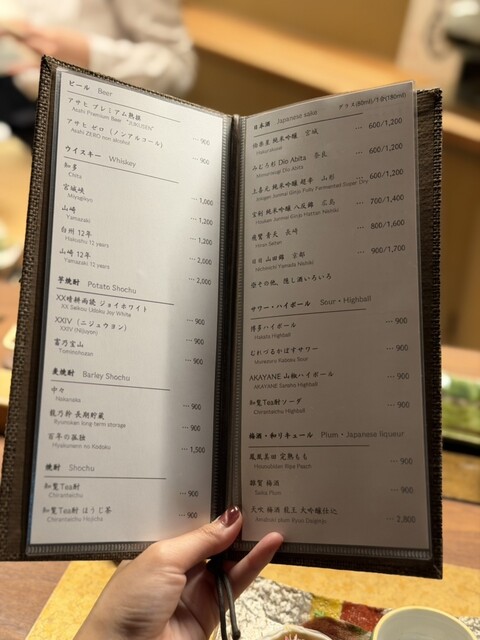 ビール Beer
アサヒ プレミアム熟撰 … 900
Asahi Premium Beer "JUKUSEN"
アサヒ ゼロ (ノンアルコール) … 900
Asahi ZERO non alcohol
ウイスキー Whiskey
知多 … 1,000
Chita
宮城峡 … 1,200
Miyagikyo
山崎 … 1,200
Yamazaki
白州 12年 … 2,000
Hakushu 12 years
山崎 12年 … 2,000
Yamazaki 12 years
芋焼酎 Potato Shochu
XX晴耕雨読 ジョイホワイト … 900
XX Seikou Udoku Joy White
XXIV (ニジュウヨン) … 900
XXIV (Nijyuyon)
富乃宝山 … 900
Tominohozan
麦焼酎 Barley Shochu
中々 … 900
Nakanaka
龍乃鈴 長期貯蔵 … 900
long term storage
百年の孤独 … 1,500
Hyakunenn no Kodoku
焼酎 Shochu
知覧Tea酎 … 900
Chiranteichu
知覧Tea酎 ほうじ茶 … 900
Chiranteichu Hojicha
日本酒 Japanese sake
グラス(80ml)/1合(180ml)
伯楽星 純米吟醸 宮城 … 600/1,200
Hakurakusei
みむろ杉 Dio Abita 奈良 … 600/1,200
Mimurosugi Dio Abita
上喜元 純米吟醸 超辛 山形 … 600/1,200
Jokigen Junmai Ginjo Fully Fermented Super Dry
宝剣 純米吟醸 八反錦 広島 … 700/1,400
Houken Junmai Ginjo Hattan Nishiki
飛鸞 青天 長崎 … 800/1,600
Hiran Seiten
日日 山田錦 京都 … 900/1,700
Nichinichi Yamada Nishiki
※その他、隠し酒いろいろ
サワー・ハイボール Sour・Highball
博多ハイボール … 900
Hakata Highball
むれづるかぼすサワー … 900
Muretsuru Kabosu Sour
AKAYANE 山椒ハイボール … 900
AKAYANE Sansho Highball
知覧Tea酎ソーダ … 900
Chiranteichu Highball
梅酒・和リキュール Plum・Japanese liqueur
鳳凰美田 完熟もも … 900
Hououbiden Ripe Peach
雑賀 梅酒 … 900
Saika Plum
天吹 梅酒 龍王 大吟醸仕込 … 2,800
Amabuki plum Ryuo Daiginjo